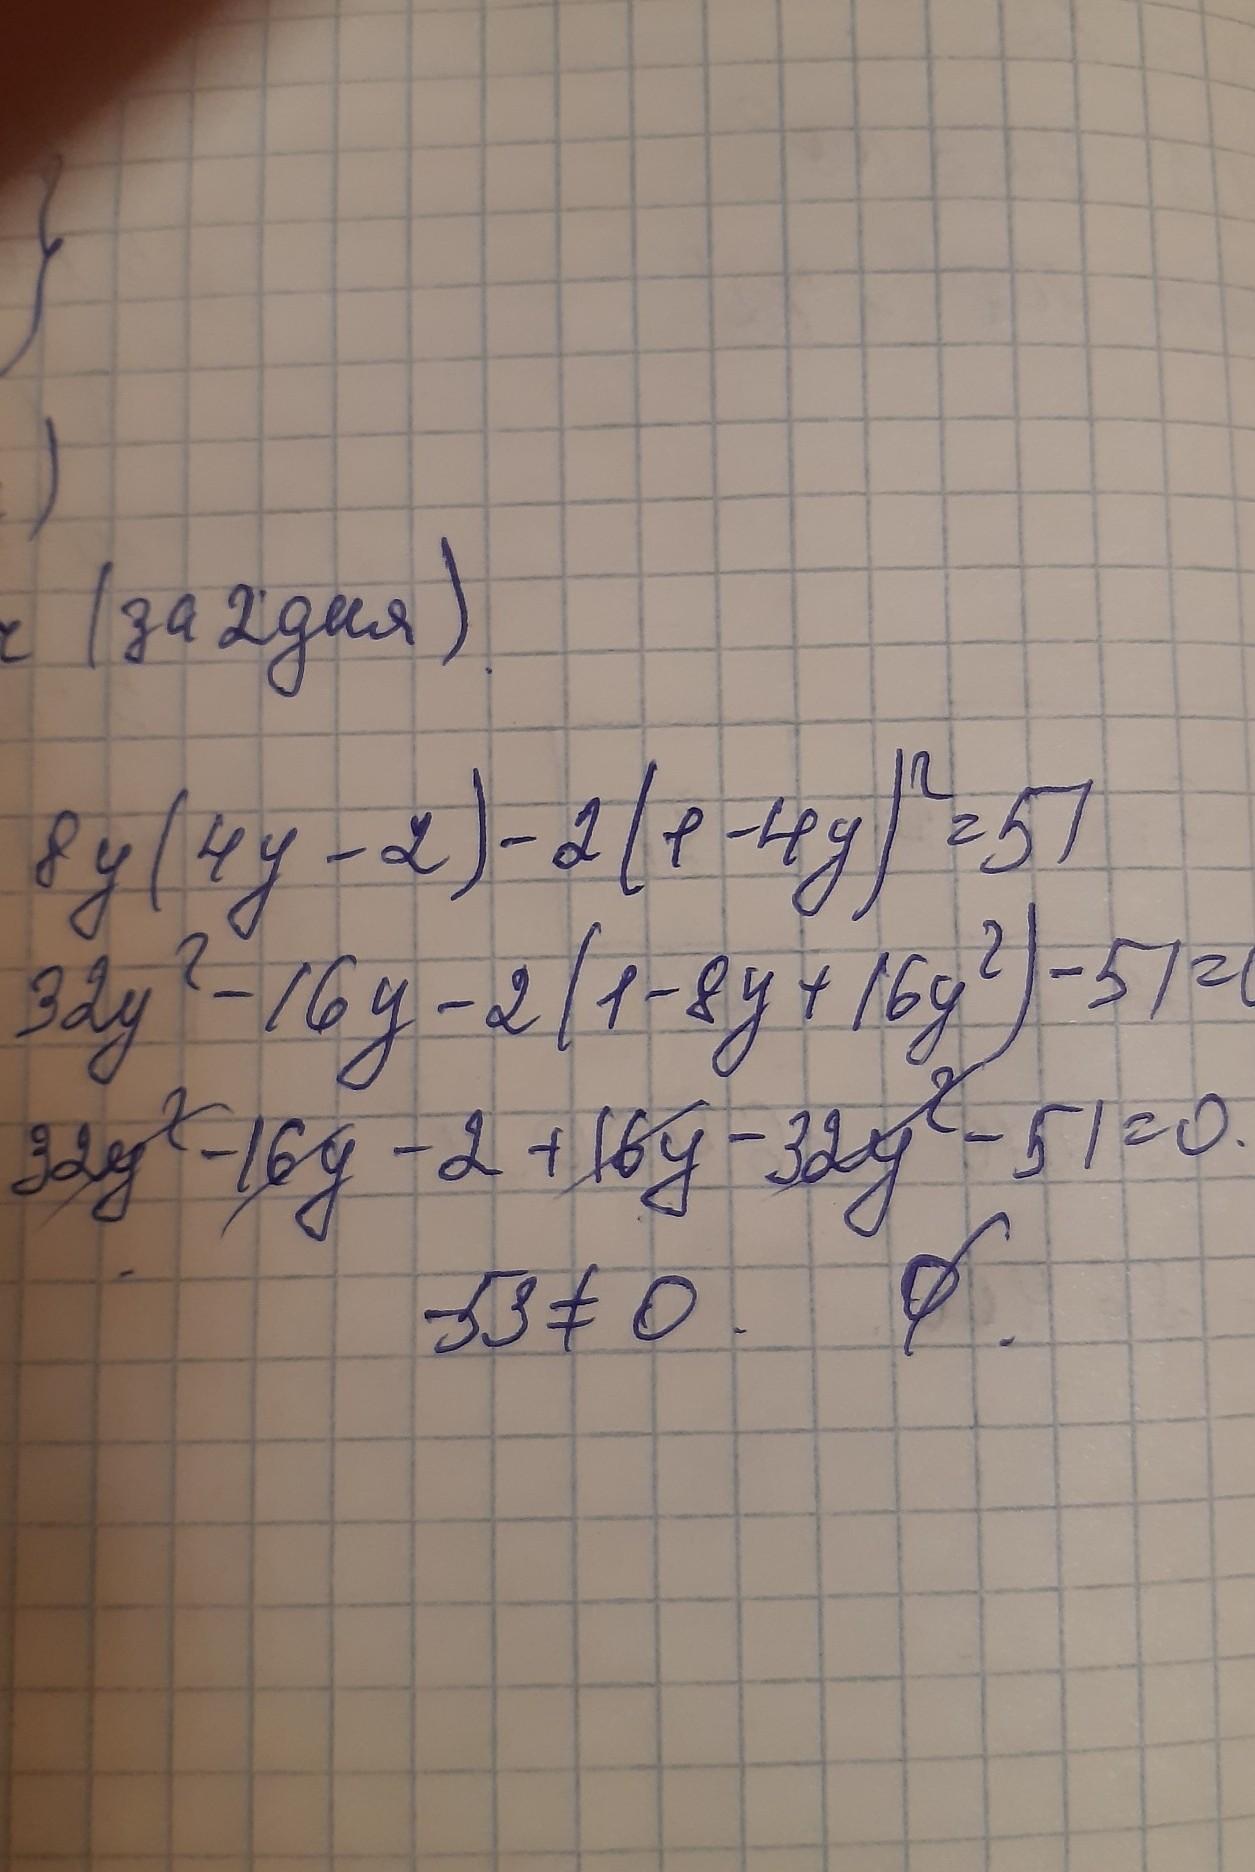 }
)
(за 2 дня).
8y(4y - 2) - 2(1 - 4y)² = 51
32y² - 16y - 2(1 - 8y + 16y²) - 51 = 0
32y² - 16y - 2 + 16y - 32y² - 51 = 0.
-53 ≠ 0. Ø.